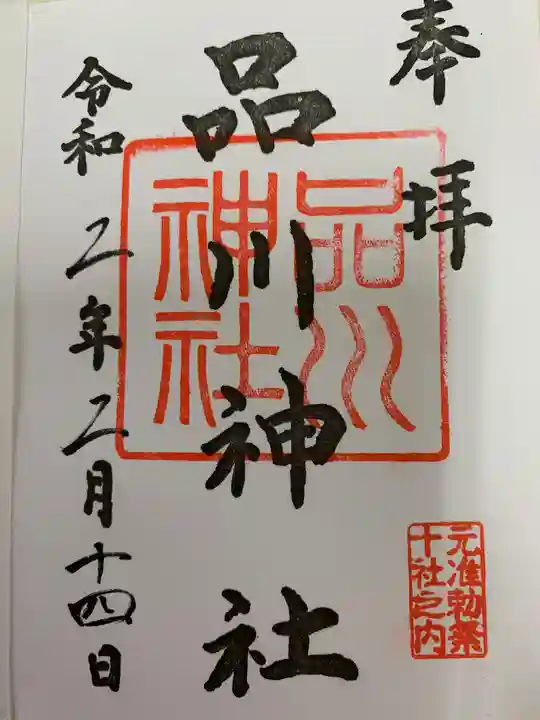 奉拝
元准勅祭
十社之内
品川神社
品川
神社
令和二年二月十四日